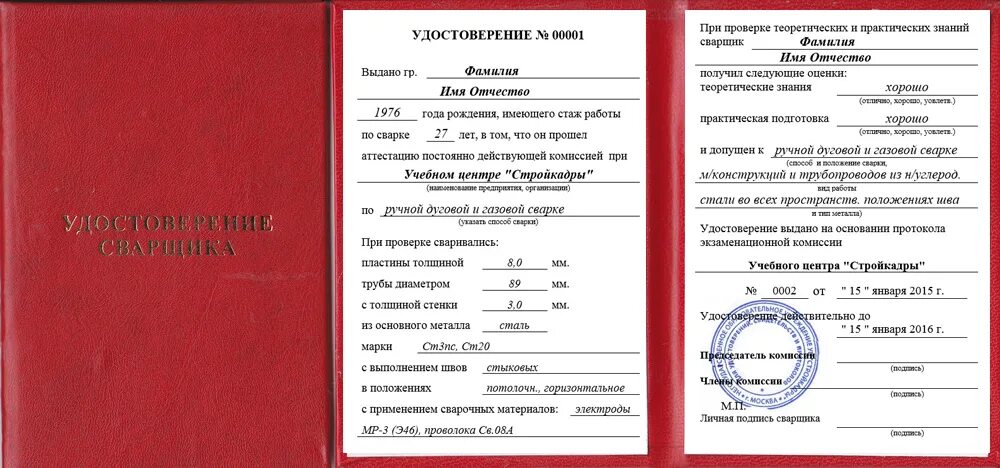 УДОСТОВЕРЕНИЕ
СВАРЩИКА
УДОСТОВЕРЕНИЕ № 00001
Выдано гр. Фамилия
Имя Отчество
1976 года рождения, имеющего стаж работы
по сварке 27 лет, в том, что он прошел
аттестацию постоянно действующей комиссией при
Учебном центре "Стройкадры"
(наименование предприятия, организации)
по ручной дуговой и газовой сварке
(указать способ сварки)
При проверке сваривались:
пластины толщиной 8,0 мм.
трубы диаметром 89 мм.
с толщиной стенки 3,0 мм.
из основного металла сталь
марки Ст3пс, Ст20
с выполнением швов стыковых
в положениях потолочн., горизонтальное
с применением сварочных материалов: электроды
МР-3 (Э46), проволока Св.08А
При проверке теоретических и практических знаний
сварщик Фамилия
Имя Отчество
получил следующие оценки:
теоретические знания хорошо
(отлично, хорошо, уовлетв.)
практическая подготовка хорошо
(отлично, хорошо, уовлетв.)
и допущен к ручной дуговой и газовой сварке
(способ и положение сварки,
м/конструкций и трубопроводов из н/углерод.
вид работы
стали во всех пространств. положениях шва
и тип металла)
Удостоверение выдано на основании протокола
экзаменационной комиссии
Учебного центра "Стройкадры"
№ 0002 от " 15 " января 2015 г.
Удостоверение действительно до
" 15 " января 2016 г.
Председатель комиссии
(подпись)
Члены комиссии
(подпись)
М.П.
Личная подпись сварщика
(подпись)
г. МОСКВА